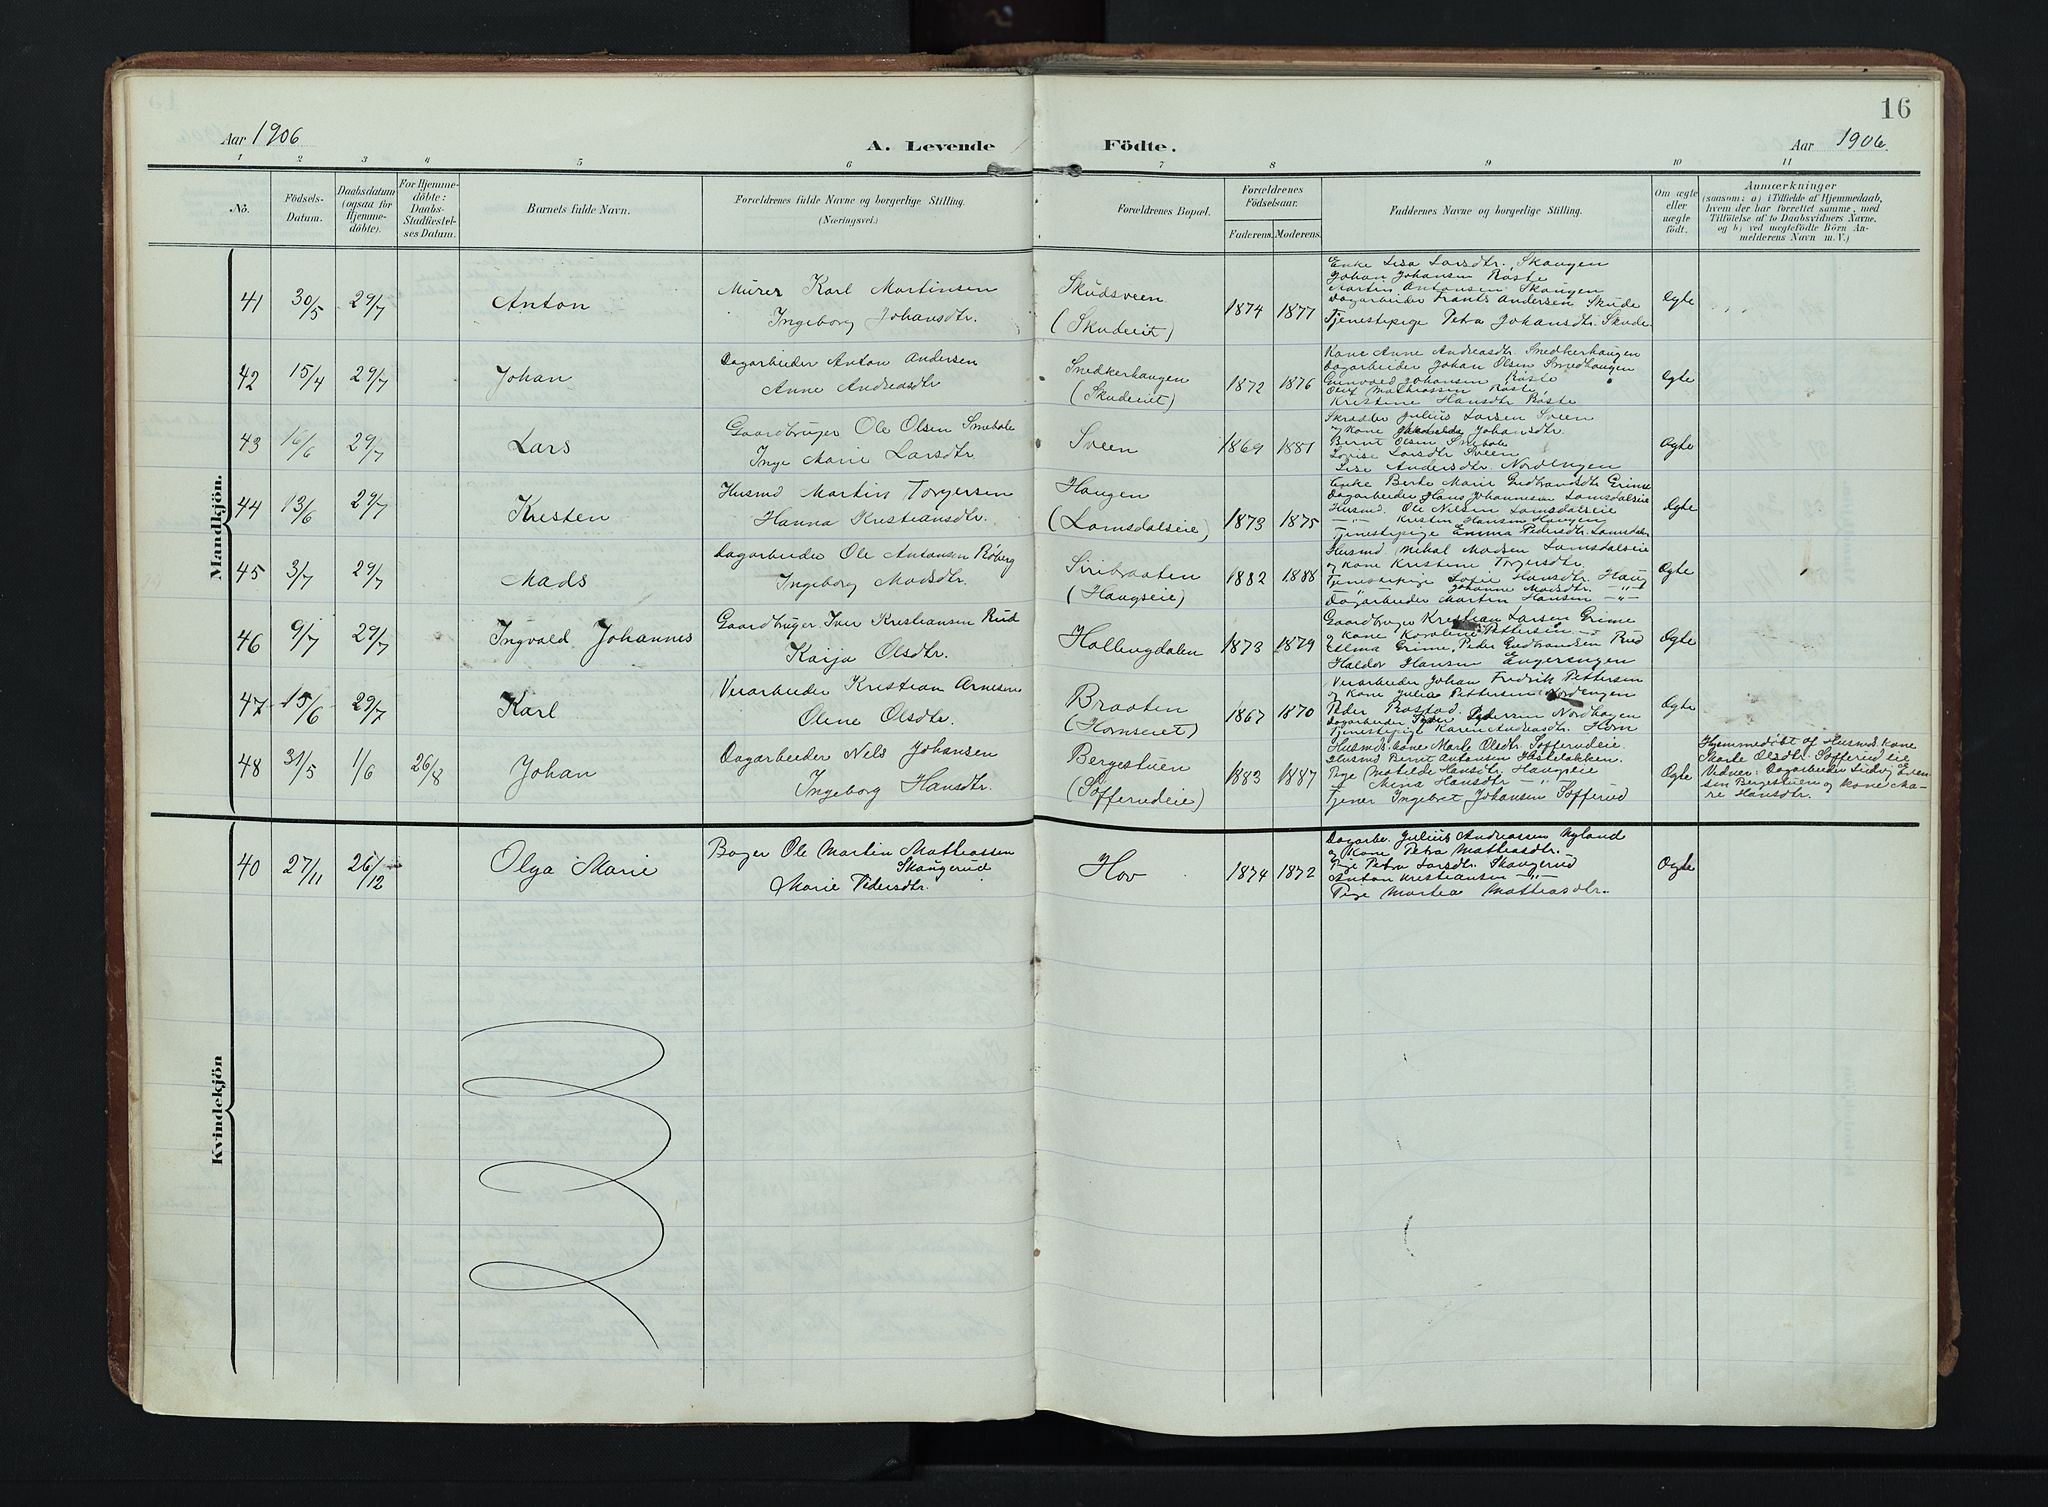 16
Aar 1906
A. Levende
Födte.
Aar 1906.
1 2 3 4 5 6 7 8 9 10 11
No.
Födsels-
Datum.
Daabsdatum
(ogsaa for
Hjemme-
döbte).
For Hjemme-
döbte:
Daabs-
Stadfæstel-
ses Datum.
Barnets fulde Navn.
Forældrenes fulde Navne og borgerlige Stilling.
(Næringsvei.)
Forældrenes Bopæl.
Forældrenes
Födselsaar.
Faderens. Moderens.
Faddernes Navne og borgerlige Stilling.
Om ægte
eller
uægte
født.
Anmærkninger
(saasom: a) i Tilfælde af Hjemmedaab,
hvem der har forrettet samme, med
Tilföielse af to Daabsvidners Navne,
og b) ved uægtefödte Börn An-
melderens Navn m. V.)
Mandkjön.
41 30/5 29/7 Anton
Murer Karl Martinsen
Ingeborg Johansdtr.
Skudsveen
(Skudeiet)
1874 1877
Enke Lisa Larsdtr. Skaugen
Johan Johansen Røste
Martin Antonsen Skaugen
Dagarbeider Frants Andersen Skude
Tjenestepige Petra Johansdtr. Skude
Egte
42 15/4 29/7 Johan
Dagarbeider Anton Andersen
Anne Andreasdtr
Snedkerhaugen
(Skudeiet)
1872 1876
Kone Anne Andreasdtr. Snedkerhaugen
Dagarbeider Johan Olsen Smedhaugen
Gunvald Johansen Røste
Olaf Mathiassen Røste
Kristine Hansdtr Røste
Egte
43 16/6 29/7 Lars
Gaardbruger Ole Olsen Smebøle
Inge Marie Larsdtr.
Sveen
1869 1881
Skrædder Julius Larsen Sveen
og kone Johansdtr.
Bernt Olsen Smebøle
Lovise Larsdtr Sveen
Lise Andersdtr. Nordengen
Egte
44 13/6 29/7 Kristen
Husmd Martin Torgersen
Hanna Kristiansdtr.
Haugen
(Lomsdalseie)
1873 1875
Enke Berte Marie Gudbrandsdtr Grime
Dagarbeider Hans Johannesen Lomsdalseie
Husmd. Ole Nilsen Lomsdalseie
—"— Kristen Hansen Haugen
Tjenestepige Emma Pedersdtr. Lomsdalen
Egte
45 3/7 29/7 Mads
Dagarbeider Ole Antonsen Røberg
Ingeborg Madsdtr.
Siribraaten
(Haugseie)
1882 1888
Husmd Mikal Madsen Lomsdalseie
og kone Kristine Torgersdtr.
Tjenestepige Sofie Hansdtr. Haug
—"— Johanne Madsdtr. —"—
Dagarbeider Martin Hansen —"—
Egte
46 9/7 29/7 Ingvald Johannes
Gaardbruger Iver Kristiansen Rud
Kaija Olsdtr.
Hallingdalen
1873 1879
Gaardbruger Kristian Larsen Grime
og kone Karoline Pettersen —"—
Elma Grime, Peder Gudbrandsen Rud
Haldor Hansen Engerengen
Egte
47 15/6 29/7 Karl
Veiarbeider Kristian Arnesen
Olene Olsdtr.
Braaten
(Hornseiet)
1867 1870
Veiarbeider Johan Fredrik Pettersen
og kone Julia Pettersen Nordengen
Peder Rosstad.
Dagarbeider Peder Pedersen Nordhagen
Tjenestepige Karen Andreasdtr. Horn
Egte
48 31/5 1/6 26/8 Johan
Dagarbeider Nels Johansen
Ingeborg Hansdtr.
Bergestuen
(Sofferudeie)
1883 1887
Husmds. kone Marte Olsdtr. Sofferudeie.
Husmd Bernt Antonsen Hasteløkken.
Pige Matilde Hansdtr. Haugseie
" Mina Hansdtr —"—
Tjener Ingebret Johansen Sofferud
Egte
Hjemmedöbt af Husmd. kone
Marte Olsdtr. Sofferudeie
Vidner: Dagarbeider Ludvig Even-
sen Bergestuen og kone Ma-
re Hansdtr.
Kvindekjön
40 27/11 26/12 Olga Marie
Bager Ole Martin Mathiassen
Skaugerud
Marie Pedersdtr.
Hov
1874 1872
Dagarbe. Julius Andreassen Nyland
og Kone Petra Mathiasdtr.
Pige Petra Larsdtr. Skaugerud
Anton Kristiansen —"—
Pige Martea Mathiasdtr.
Egte